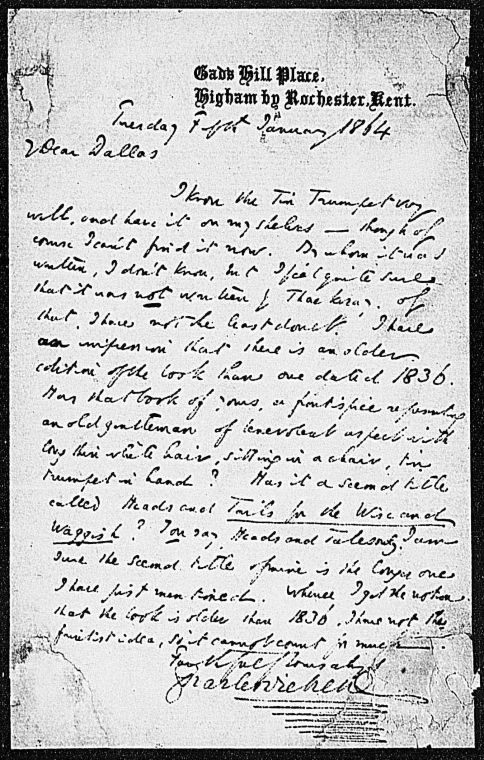 Gad's Hill Place,
Higham by Rochester, Kent.
Tuesday Fifth January 1864
Dear Dallas
I know the Tin Trumpet very
well, and have it on my shelves — though of
course I can't find it now. By whom it was
written, I don't know, but I feel quite sure
that it was not written by Thackeray. Of
that, I have not the least doubt. I have
an impression that there is an older
edition of the book than one dated 1836.
Has that book of yours, a frontispiece representing
an old gentleman of benevolent aspect with
long thin white hair, sitting in a chair, tin
trumpet in hand? Has it a second title
called Heads and Tails for the Wise and
Waggish? You say Heads and Tales only. I am
sure the second title of mine is the longer one
I have just mentioned. Whence I got the notion
that the book is older than 1836, I have not the
faintest idea, so it cannot count for much.
Faithfully Yours always
Charles Dickens